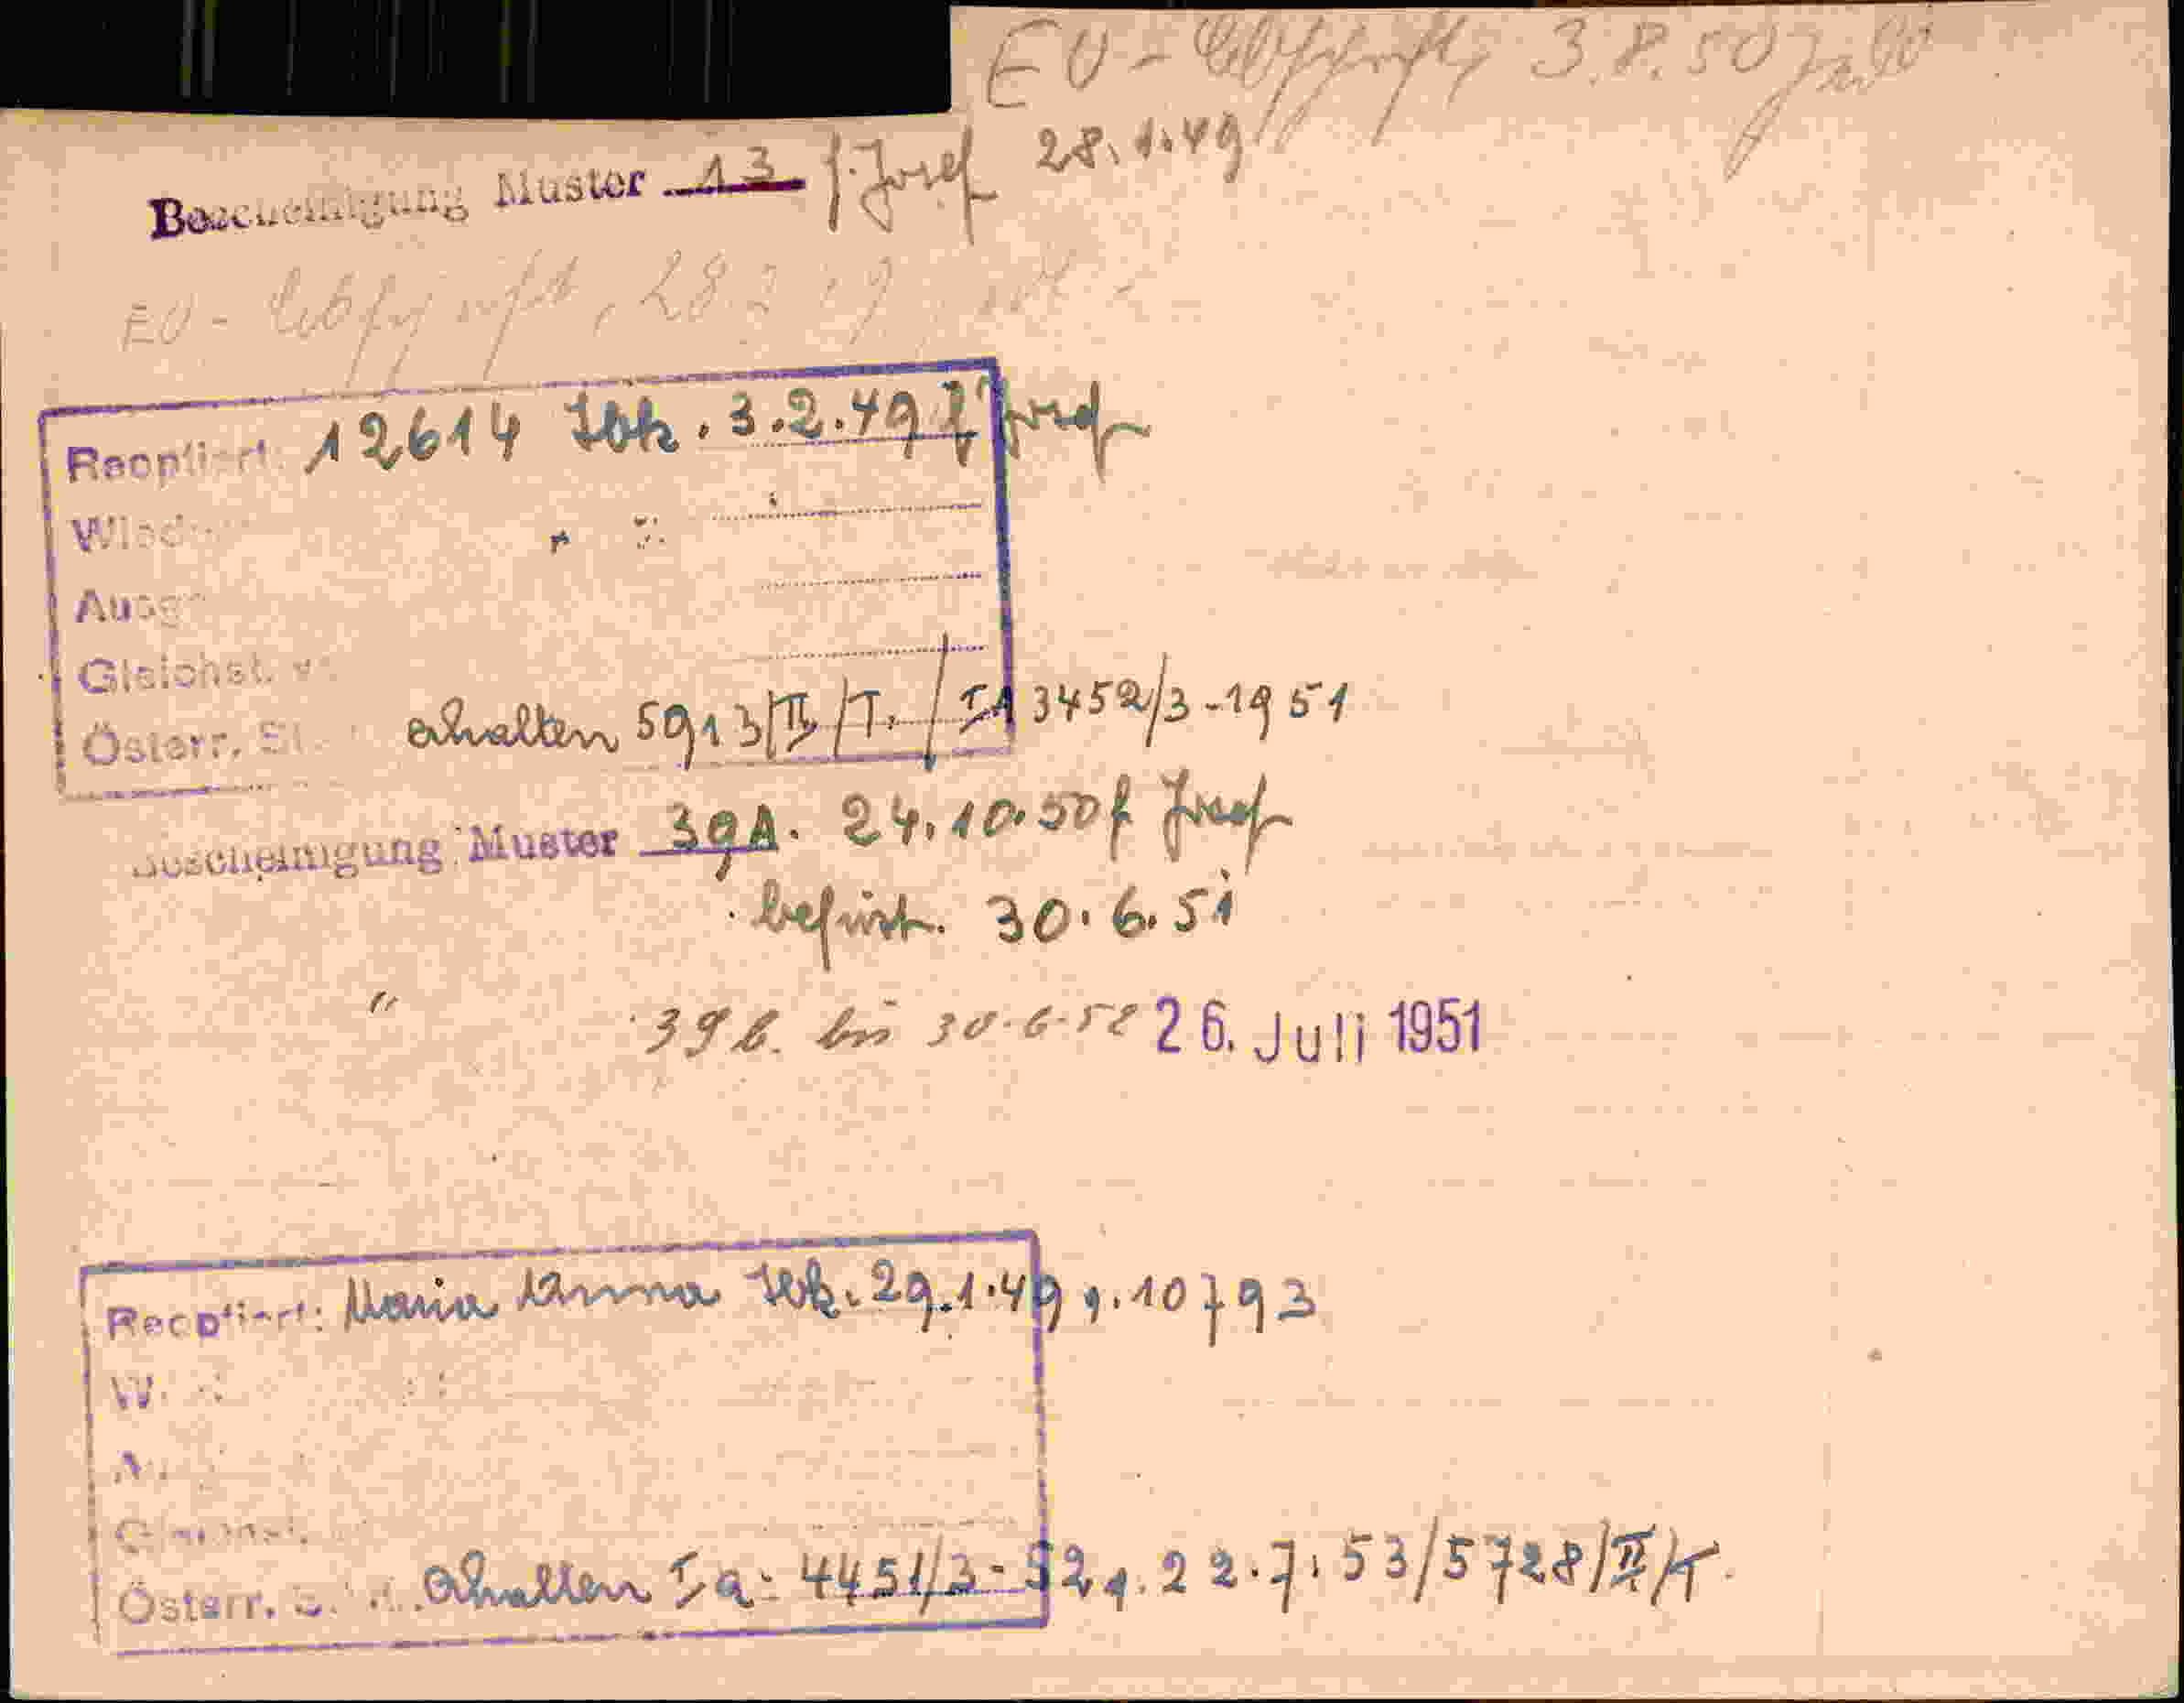 EU - Abschrift, 3.8.50
Bescheinigung Muster 13 f. Josef 28.1.49
EU - Abschrift, 28.2.49
Recptiert: 12614 Ibk. 3.2.49 f. Josef
Wied
Ausg
Gleichst. v.
Österr. St. erhalten 5913/II/T. / IA 3452/3-1951
Bescheinigung Muster 39A. 24.10.50 f Josef
befrist. 30.6.51
" 39b. bis 30.6.52 26. Juli 1951
Recptiert: Maria Anna Ibk. 29.1.49, 10793
W
A
Gleichst.
Österr. St. erhalten Ia: 4451/3-52, 22.7.53/5728/II/T.